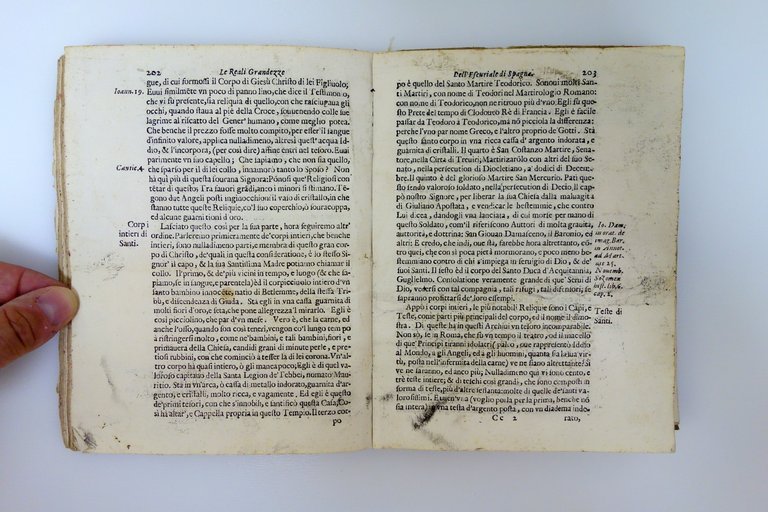 202 Le Reali Grandezze
gue, di cui formossi il Corpo di Giesù Christo di lei Figliuolo,
Ioann. 19. Euui similmēte vn poco di panno lino, che dice il Testimonio,
che vi fu presente, sia reliquia di quello, con che rasciugaua gli
occhi, quando staua al piè della Croce, souuenendo colle sue
lagrime al riscatto del Gener' humano, come meglio potea.
Che benche il prezzo fosse molto compito, per esser il sangue
d'infinito valore, applica nulladimeno, altresì quest'acqua Id-
dio, & l'incorpora, (per così dire) affine entri nel tesoro. Euui
parimente vn suo capello; Che sapiamo, che non sia quello,
Cantic. 4. che sparso per il di lei collo, innamorò tanto lo Sposo? Non
hà quì più di questa sourana Signora: Pónosi que' Religiosi con-
tētar di questo; Tra fauori grādi, anco i minori si stimano. Tē-
gono due Angeli posti inginocchioni il vaso di cristallo, in che
stanno tutte queste Reliquie, co'l suo coperchio, ò souracoppa,
ed alcune guarnitioni d'oro.
Corpi
intieri di
Santi.
Lasciato questo così per la sua parte, hora seguiremo altr'
ordine. Parleremo primieramente de' corpi intieri, che benche
intieri, sono nulladimeno parti, e membra di questo gran cor-
po di Christo, de' quali in questa consideratione, è lo stesso Si-
gnor' il capo, & la sua Santissima Madre potiamo chiamar il
collo. Il primo, & de' più vicini in tempo, e luogo (& che sa-
piamo, se in sangue, e parentela) è il corpicciuolo intiero d'vn
santo bambino innocēte, natio di Betlemme, della stessa Tri-
bù, e discendēza di Giuda. Sta egli in vna cassa guarnita di
molti fiori d'oro, e seta, che pone allegrezza il mirarlo. Egli è
così picciolino, che par d'vn mese. Vero è, che la carne, ed
anche l'osso, quando son così teneri, vengon co'l lungo tempo
à ristringersi molto, come ne' bambini, e tali bambini, fiori, e
primauera della Chiesa, candidi grani di minute perle, e pre-
tiosi rubbini, con che cominciò a tesser la di lei corona. Vn'al-
tro corpo hà quasi intiero, ò gli manca poco, & egli è di quel va-
loroso capitaino della Santa Legion de' Tebbei, nomato Mau-
ritio. Stà in vn'arca, ò cassa di metallo indorato, guarnita d'ar-
gento, e cristalli, molto ricca, e vagamente. Ed egli è questo
de' primi tesori, con che s'innobilì, e santificò questa Casa; Co-
sì hà altar', e Cappella propria in questo Tempio. Il terzo cor-
po
Dell'Escuriale di Spagna. 203
po è quello del Santo Martire Teodorico. Sonoui molti San-
ti Martiri, con nome di Teodori nel Martirologio Romano:
con nome di Teodorico, non ne ritrouo più d'vno. Egli fù que-
sto Prete del tempo di Clodoueo Rè di Francia. Egli è facile
passar da Teodoro à Teodorico, ma nò picciola la differenza:
perche l'vno par nome Greco, e l'altro proprio de' Gotti. Stà
questo santo corpo in vna ricca cassa d'argento indorata, e
guarnita di cristalli. Il quarto è San Costanzo Martire, Sena-
tore, nella Città di Treuiri; Martirizarōlo con altri del suo Se-
nato, nella persecution di Diocletiano, a' dodici di Decem-
bre. Il quinto è del glorioso Martire San Mercurio. Patì que-
sto sendo valoroso soldato, nella persecution di Decio. Il cap-
pò nostro Signore, per liberar la sua Chiesa dalla maluagità
di Giuliano Apostata, e vendicar le bestemmie, che contro
Lui dicea, dandogli vna lanciata, di cui morse per mano di
questo Soldato, com'il riferiscono Auttori di molta grauità,
auttorità, e dottrina: San Giouan Damasceno, il Baronio, ed
altri: E credo, che indi, oue stà, farebbe hora altrettanto, cō-
tro quei, che con sì poca pietà mormorano, e poco meno be-
stemmiano contro di chi s'impiega in seruigio di Dio, & de'
suoi Santi. Il sesto è il corpo del Santo Duca d'Acquitannia,
Guglielmo. Consolatione veramente grande di que' Serui di
Dio, vedersi con tal compagnia, tali rifugi, tali difensori, se
sapranno profittarsi de' loro essempi.
Io. Dam.
in orat. de
imag. Bar.
in Annot.
ad Mart.
die 25.
Nouemb.
hist. lib. 6.
cap. 2.
Teste di
Santi.
Appò i corpi intieri, le più notabili Reliquie sono i Capi, e
Teste, come parti più principali del corpo, ed il nome il dimo-
stra. Di queste hà in questi Archiui vn tesoro incomparabile.
Non sò, se in Roma, che fù vn tempo il teatro, ed il macello
di que' Principi tiranni idolatri, (palco, oue rappresentò Iddio
al Mondo, a gli Angeli, ed a gli huomini, quanta sia la sua vir-
tù, posta nell'infermità della carne) ve ne siano altrettante? Si
ve ne saranno, ed anco più; Nulladimeno quì vi sono cento, e
trè teste intiere; & di teschi così grandi, che sono composti in
forma di teste, più d'altre settanta: molte di quelle de' santi va-
lorosissimi. Euuen'vna (voglio porla per la prima, benche nō
sia intera) in vna testa d'argento posta, con vn diadema indo-
Cc 2 rato,